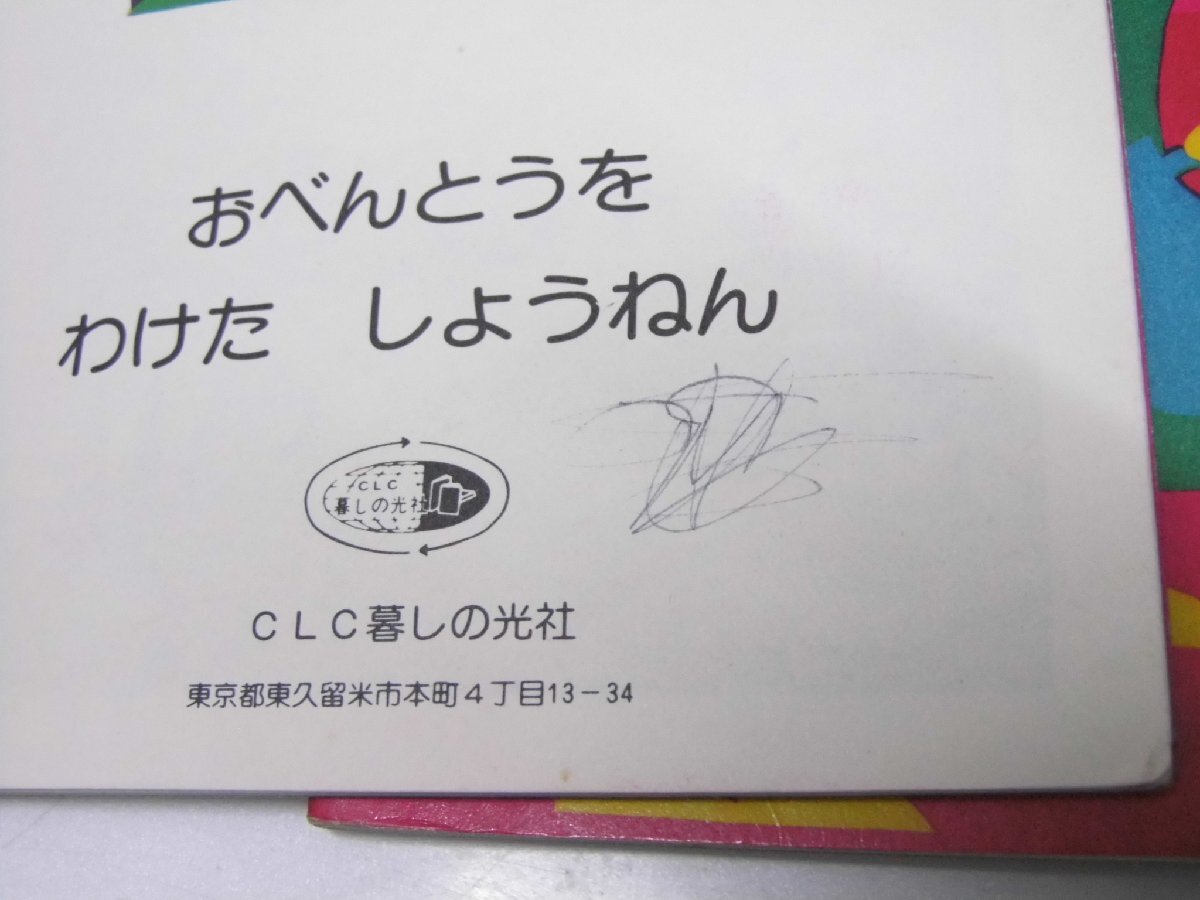 おべんとうを
わけた しようねん
CLC
暮しの光社
CLC暮しの光社
東京都東久留米市本町4丁目13-34